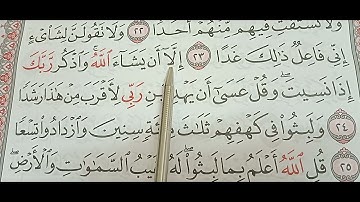 تَسْتَفْتِ فِيهِم مِّنْهُمْ أَحَدًا ٢٢ وَلَا تَقُولَنَّ لِشَا۟ىْءٍ
إِنِّى فَاعِلٌ ذَٰلِكَ غَدًا ٢٣ إِلَّآ أَن يَشَآءَ ٱللَّهُ ۚ وَٱذْكُر رَّبَّكَ
إِذَا نَسِيتَ وَقُلْ عَسَىٰٓ أَن يَهْدِيَنِ رَبِّى لِأَقْرَبَ مِنْ هَٰذَا رَشَدًا
٢٤ وَلَبِثُوا۟ فِى كَهْفِهِمْ ثَلَٰثَ مِا۟ئَةٍ سِنِينَ وَٱزْدَادُوا۟ تِسْعًا
٢٥ قُلِ ٱللَّهُ أَعْلَمُ بِمَا لَبِثُوا۟ ۖ لَهُۥ غَيْبُ ٱلسَّمَٰوَٰتِ وَٱلْأَرْضِ ۖ